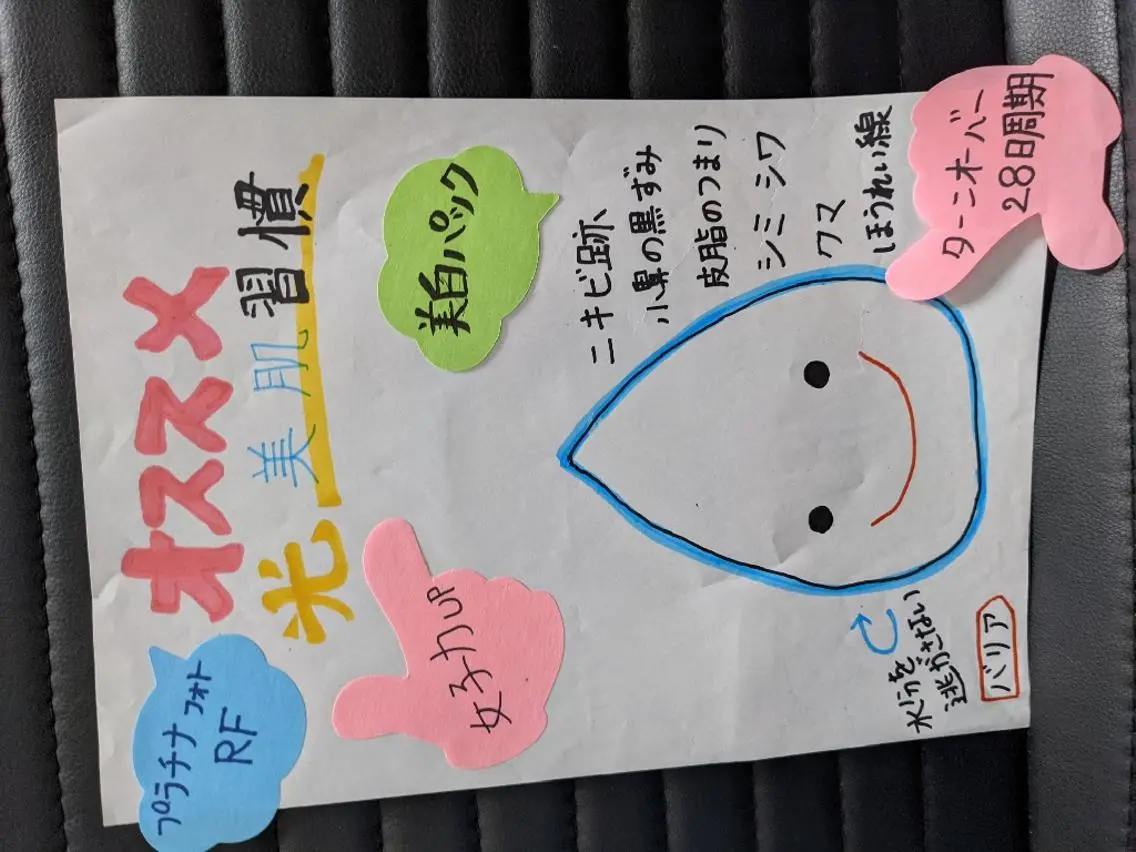 プラチナフォト
RF
オススメ
光美肌習慣
女子力UP
美白パック
ニキビ跡
小鼻の黒ずみ
皮脂のつまり
シミ シワ
クマ
ほうれい線
ターンオーバー
28日周期
水分を
逃がさない
バリア